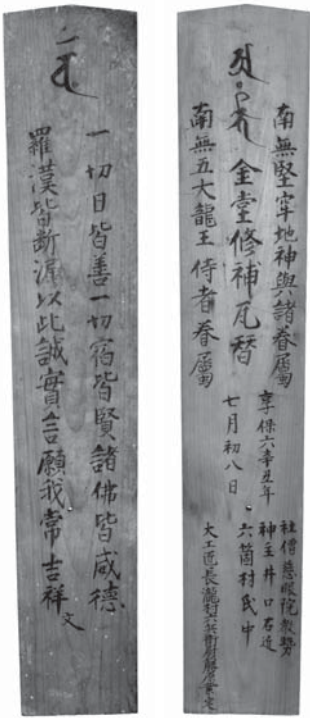 南無堅牢地神與諸眷屬
金堂修補瓦替
南無五大龍王侍者眷屬
享保六辛丑年
七月初八日
社僧慈眼院
神主井口右近
六箇村氏中
大工匠長瀧村六兵衛尉藤原
一切日皆善一切宿皆賢諸佛皆威德
羅漢皆断漏以此誠實言願我常吉祥文